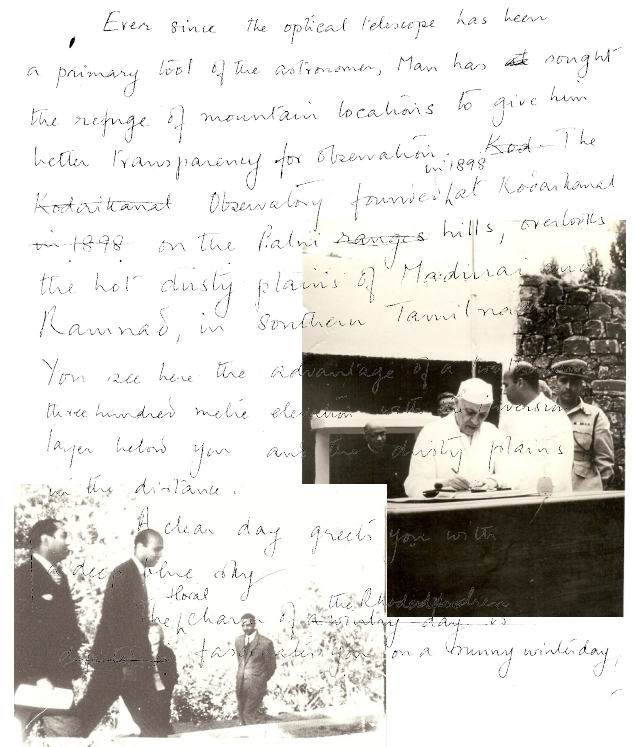 Ever since the optical telescope has been
a primary tool of the astronomer, Man has at sought
the refuge of mountain locations to give him
better transparency for observation. Kod- The
in 1898
Kodaikanal Observatory founded at Kodaikanal
in 1898 on the Palni ranges hills, overlooks
the hot dusty plains of Madurai and
Ramnad, in southern Tamilnadu
You see here the advantage of a two thousand
three hundred metre elevation with an inversion
layer below you and the dusty plains
in the distance.
A clear day greets you with
a deep blue sky
floral the Rhododendron
The charm of a wintry day is
fascinates you on a sunny winterday,